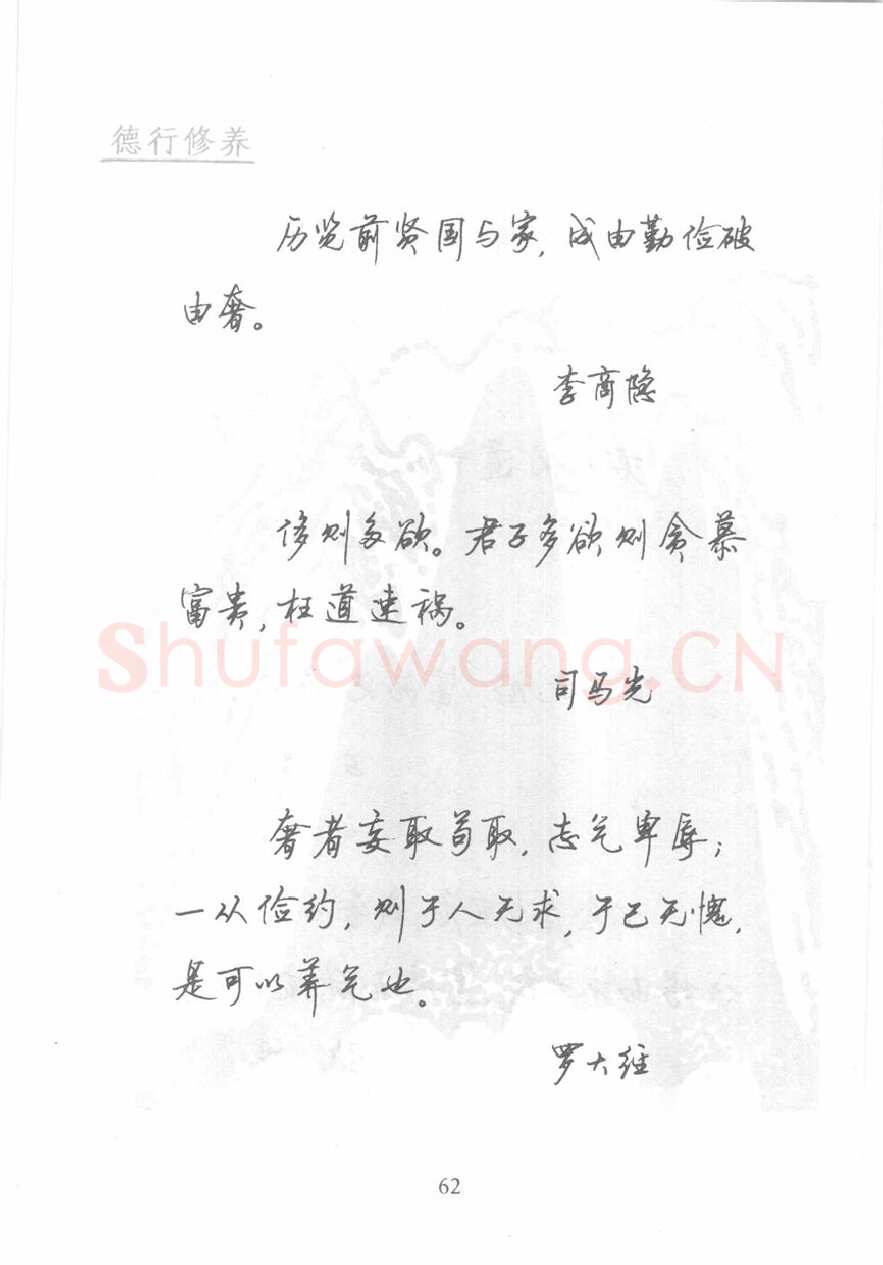 德行修养
历览前贤国与家,成由勤俭破
由奢。
李商隐
侈则多欲。君子多欲则贪慕
富贵,枉道速祸。
Shufawang.CN
司马光
奢者妄取苟取,志气卑辱;
一从俭约,则于人无求,于己无愧,
是可以养气也。
罗大经
62